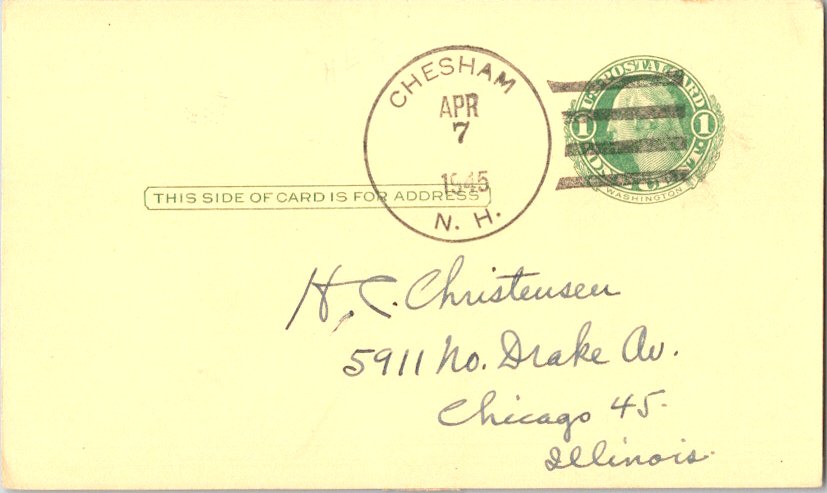 CHESHAM
APR
7
1945
N. H.
U.S. POSTAL CARD
1 1
ONE CENT
WASHINGTON
THIS SIDE OF CARD IS FOR ADDRESS
H. C. Christensen
5911 No. Drake Av.
Chicago 45.
Illinois.